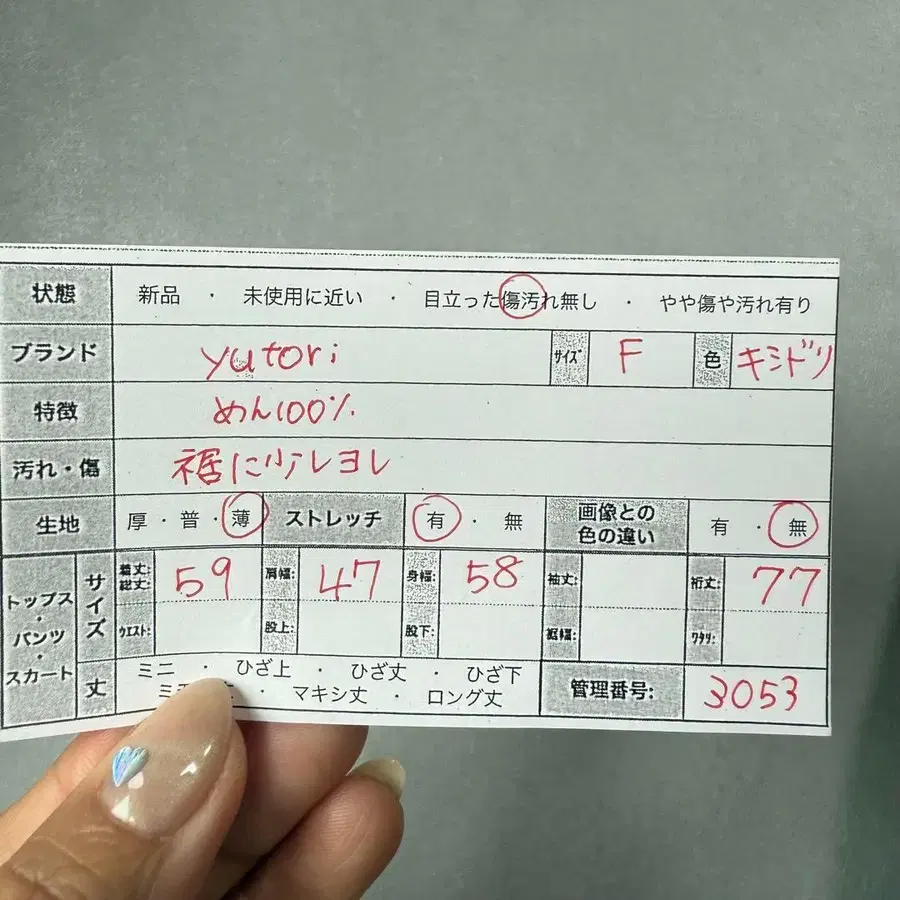 状態 新品 ・ 未使用に近い ・ 目立った傷汚れ無し ・ やや傷や汚れ有り
ブランド yutori サイズ F 色 キミドリ
特徴 めん100%
汚れ・傷 裾に少しヨレ
生地 厚・普・薄 ストレッチ 有 ・ 無 画像との色の違い 有 ・ 無
トップス・パンツ・スカート サイズ 着丈:総丈: 59 肩幅: 47 身幅: 58 袖丈: 裄丈: 77
ウエスト: 股上: 股下: 裾幅: ワタリ:
丈 ミニ ・ ひざ上 ・ ひざ丈 ・ ひざ下 管理番号: 3053
・ マキシ丈 ・ ロング丈